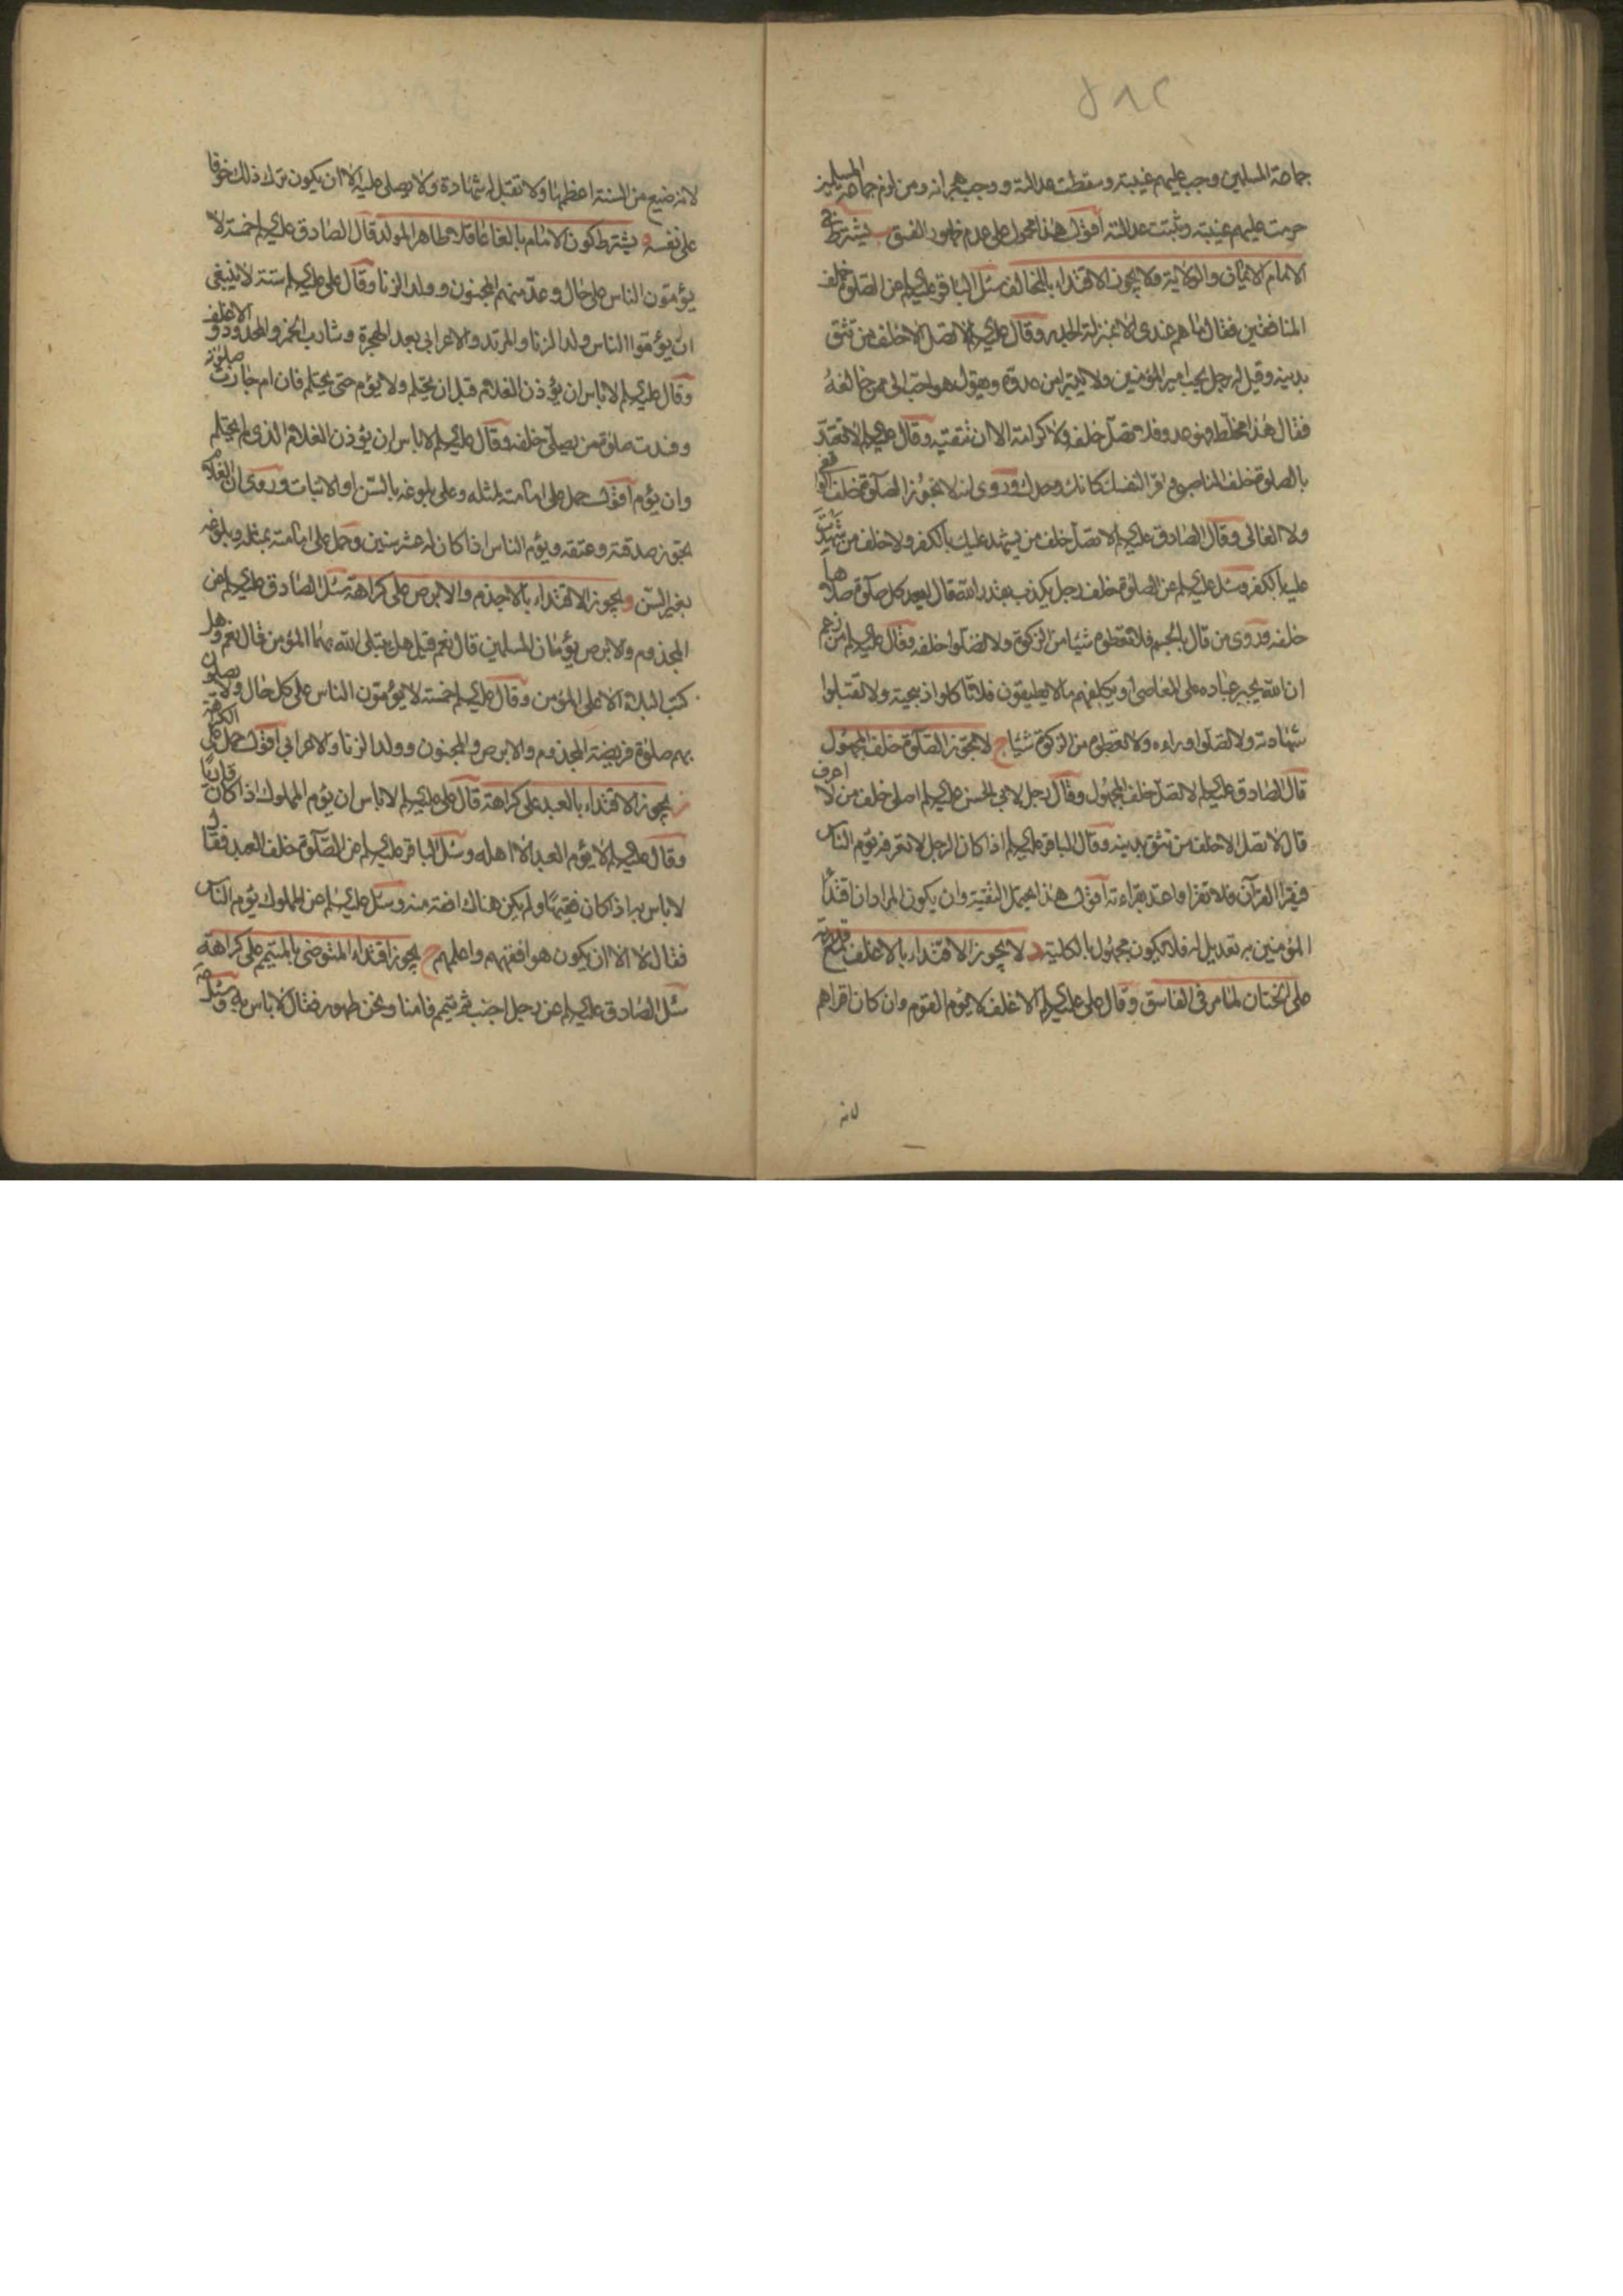 ٥٨٢
جماعة المسلمين وجب عليهم غيبته وسقطت عدالته ووجب هجرانه ومن لزم جماعة المسلمين
حرمت عليهم غيبته وثبتت عدالته اقول هذا محمول على عدم ظهور الفسق ب يشترط في
الامام الايمان والولاية فلا يجوز الاقتداء بالمخالف سئل الباقر عليه السلم عن الصلوة خلف
المنافقين فقال ما هم عندي الا بمنزلة الجدر وقال عليه السلم لا تصل الا خلف من تثق
بدينه وقيل له رجل يحب امير المؤمنين ولا يتبرا من عدوه ويقول هو احب الي ممن خالفه
فقال هذا مخلط وهو عدو فلا تصل خلفه ولا كرامة الا ان تتقيه وقال عليه السلم لا تعتد
بالصلوة خلف الناصبي واقرا لنفسك كانك وحدك وروى انه لا تجوز الصلوة خلف الواقفي
ولا الغالي وقال الصادق عليه السلم لا تصل خلف من يشهد عليك بالكفر ولا خلف من شهدت
عليه بالكفر وسئل عليه السلم عن الصلوة خلف رجل يكذب بقدر الله قال ليعد كل صلوة صلاها
خلفه وروى من قال بالجسم فلا تعطوه شيئا من الزكوة ولا تصلوا خلفه وقال عليه السلم من زعم
ان الله يجبر عباده على المعاصي او يكلفهم ما لا يطيقون فلا تاكلوا ذبيحته ولا تقبلوا
شهادته ولا تصلوا وراءه ولا تعطوه من الزكوة شيئا ج لا تجوز الصلوة خلف المجهول
قال الصادق عليه السلم لا تصل خلف المجهول وقال رجل لابي الحسن عليه السلم اصلي خلف من لا اعرف
قال لا تصل الا خلف من تثق بدينه وقال الباقر عليه السلم اذا كان الرجل لا تعرفه يؤم الناس
فيقرا القرآن فلا تقرا واعتد بقراءته اقول هذا يحتمل التقية وان يكون المراد ان اقتداء
المؤمنين به تعديل له فلا يكون مجهولا بالكلية د لا يجوز الاقتداء بالاغلف مع قدرته
على الختان لما مر في الفاسق وقال علي عليه السلم الاغلف لا يؤم القوم وان كان اقراهم
لانه
لانه ضيع من السنة اعظمها ولا تقبل له شهادة ولا يصلى عليه الا ان يكون ترك ذلك خوفا
على نفسه ه يشترط كون الامام بالغا عاقلا طاهر المولد قال الصادق عليه السلم خمسة لا
يؤمون الناس على حال وعد منهم المجنون وولد الزنا وقال علي عليه السلم ستة لا ينبغي
ان يؤموا الناس ولد الزنا والمرتد والاعرابي بعد الهجرة وشارب الخمر والمحدود والاغلف
وقال عليه السلم لا باس ان يؤذن الغلام قبل ان يحتلم ولا يؤم حتى يحتلم فان ام جازت صلوته
وفسدت صلوة من يصلي خلفه وقال عليه السلم لا باس ان يؤذن الغلام الذي لم يحتلم
وان يؤم اقول حمل على امامته لمثله وعلى بلوغه بالسن او الانبات وروى ان الغلام
تجوز صدقته وعتقه ويؤم الناس اذا كان له عشر سنين وحمل على امامته بمثله وبلوغه
بغير السن و يجوز الاقتداء بالاجذم والابرص على كراهة سئل الصادق عليه السلم عن
المجذوم والابرص يؤمان المسلمين قال نعم قيل هل يبتلي الله بهما المؤمن قال نعم وهل
كتب البلاء الا على المؤمن وقال عليه السلم خمسة لا يؤمون الناس على كل حال ولا يصلون
بهم صلوة فريضة المجذوم والابرص والمجنون وولد الزنا والاعرابي اقول حمل على الكراهة
ز يجوز الاقتداء بالعبد على كراهة قال علي عليه السلم لا باس ان يؤم المملوك اذا كان قاريا
وقال عليه السلم لا يؤم العبد الا اهله وسئل الباقر عليه السلم عن الصلوة خلف العبد فقال
لا باس به اذا كان فقيها ولم يكن هناك افقه منه وسئل عليه السلم عن المملوك يؤم الناس
فقال لا الا ان يكون هو افقههم واعلمهم ح يجوز اقتداء المتوضي بالمتيمم على كراهة
سئل الصادق عليه السلم عن رجل اجنب ثم تيمم فامنا ونحن طهور فقال لا باس به وسئل